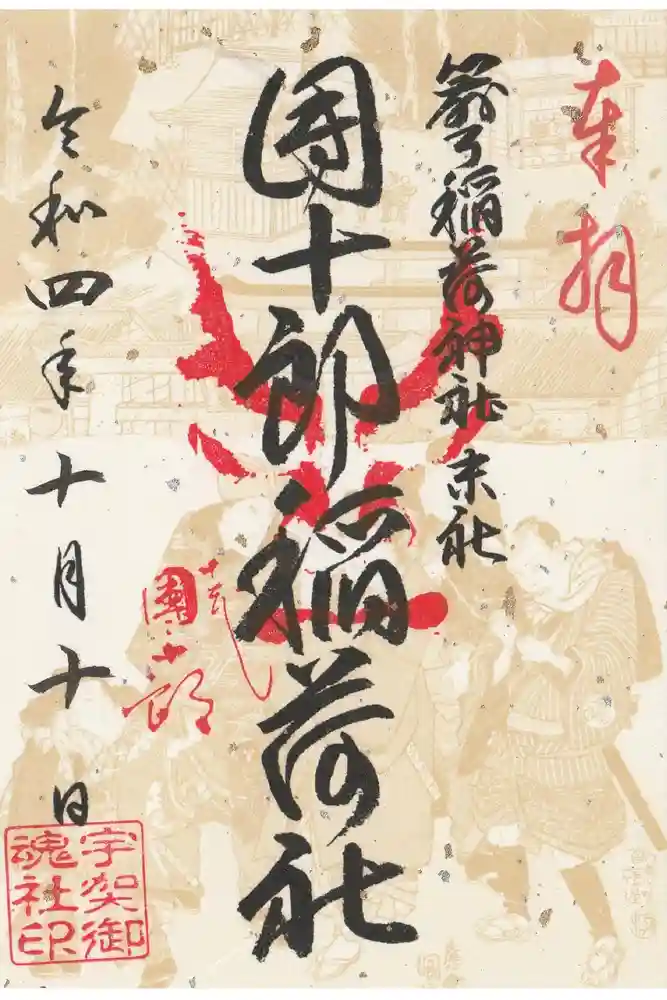 奉拝
箭弓稲荷神社末社
團十郎稲荷社
團十郎
令和四年十月十日
宇賀御
魂社印